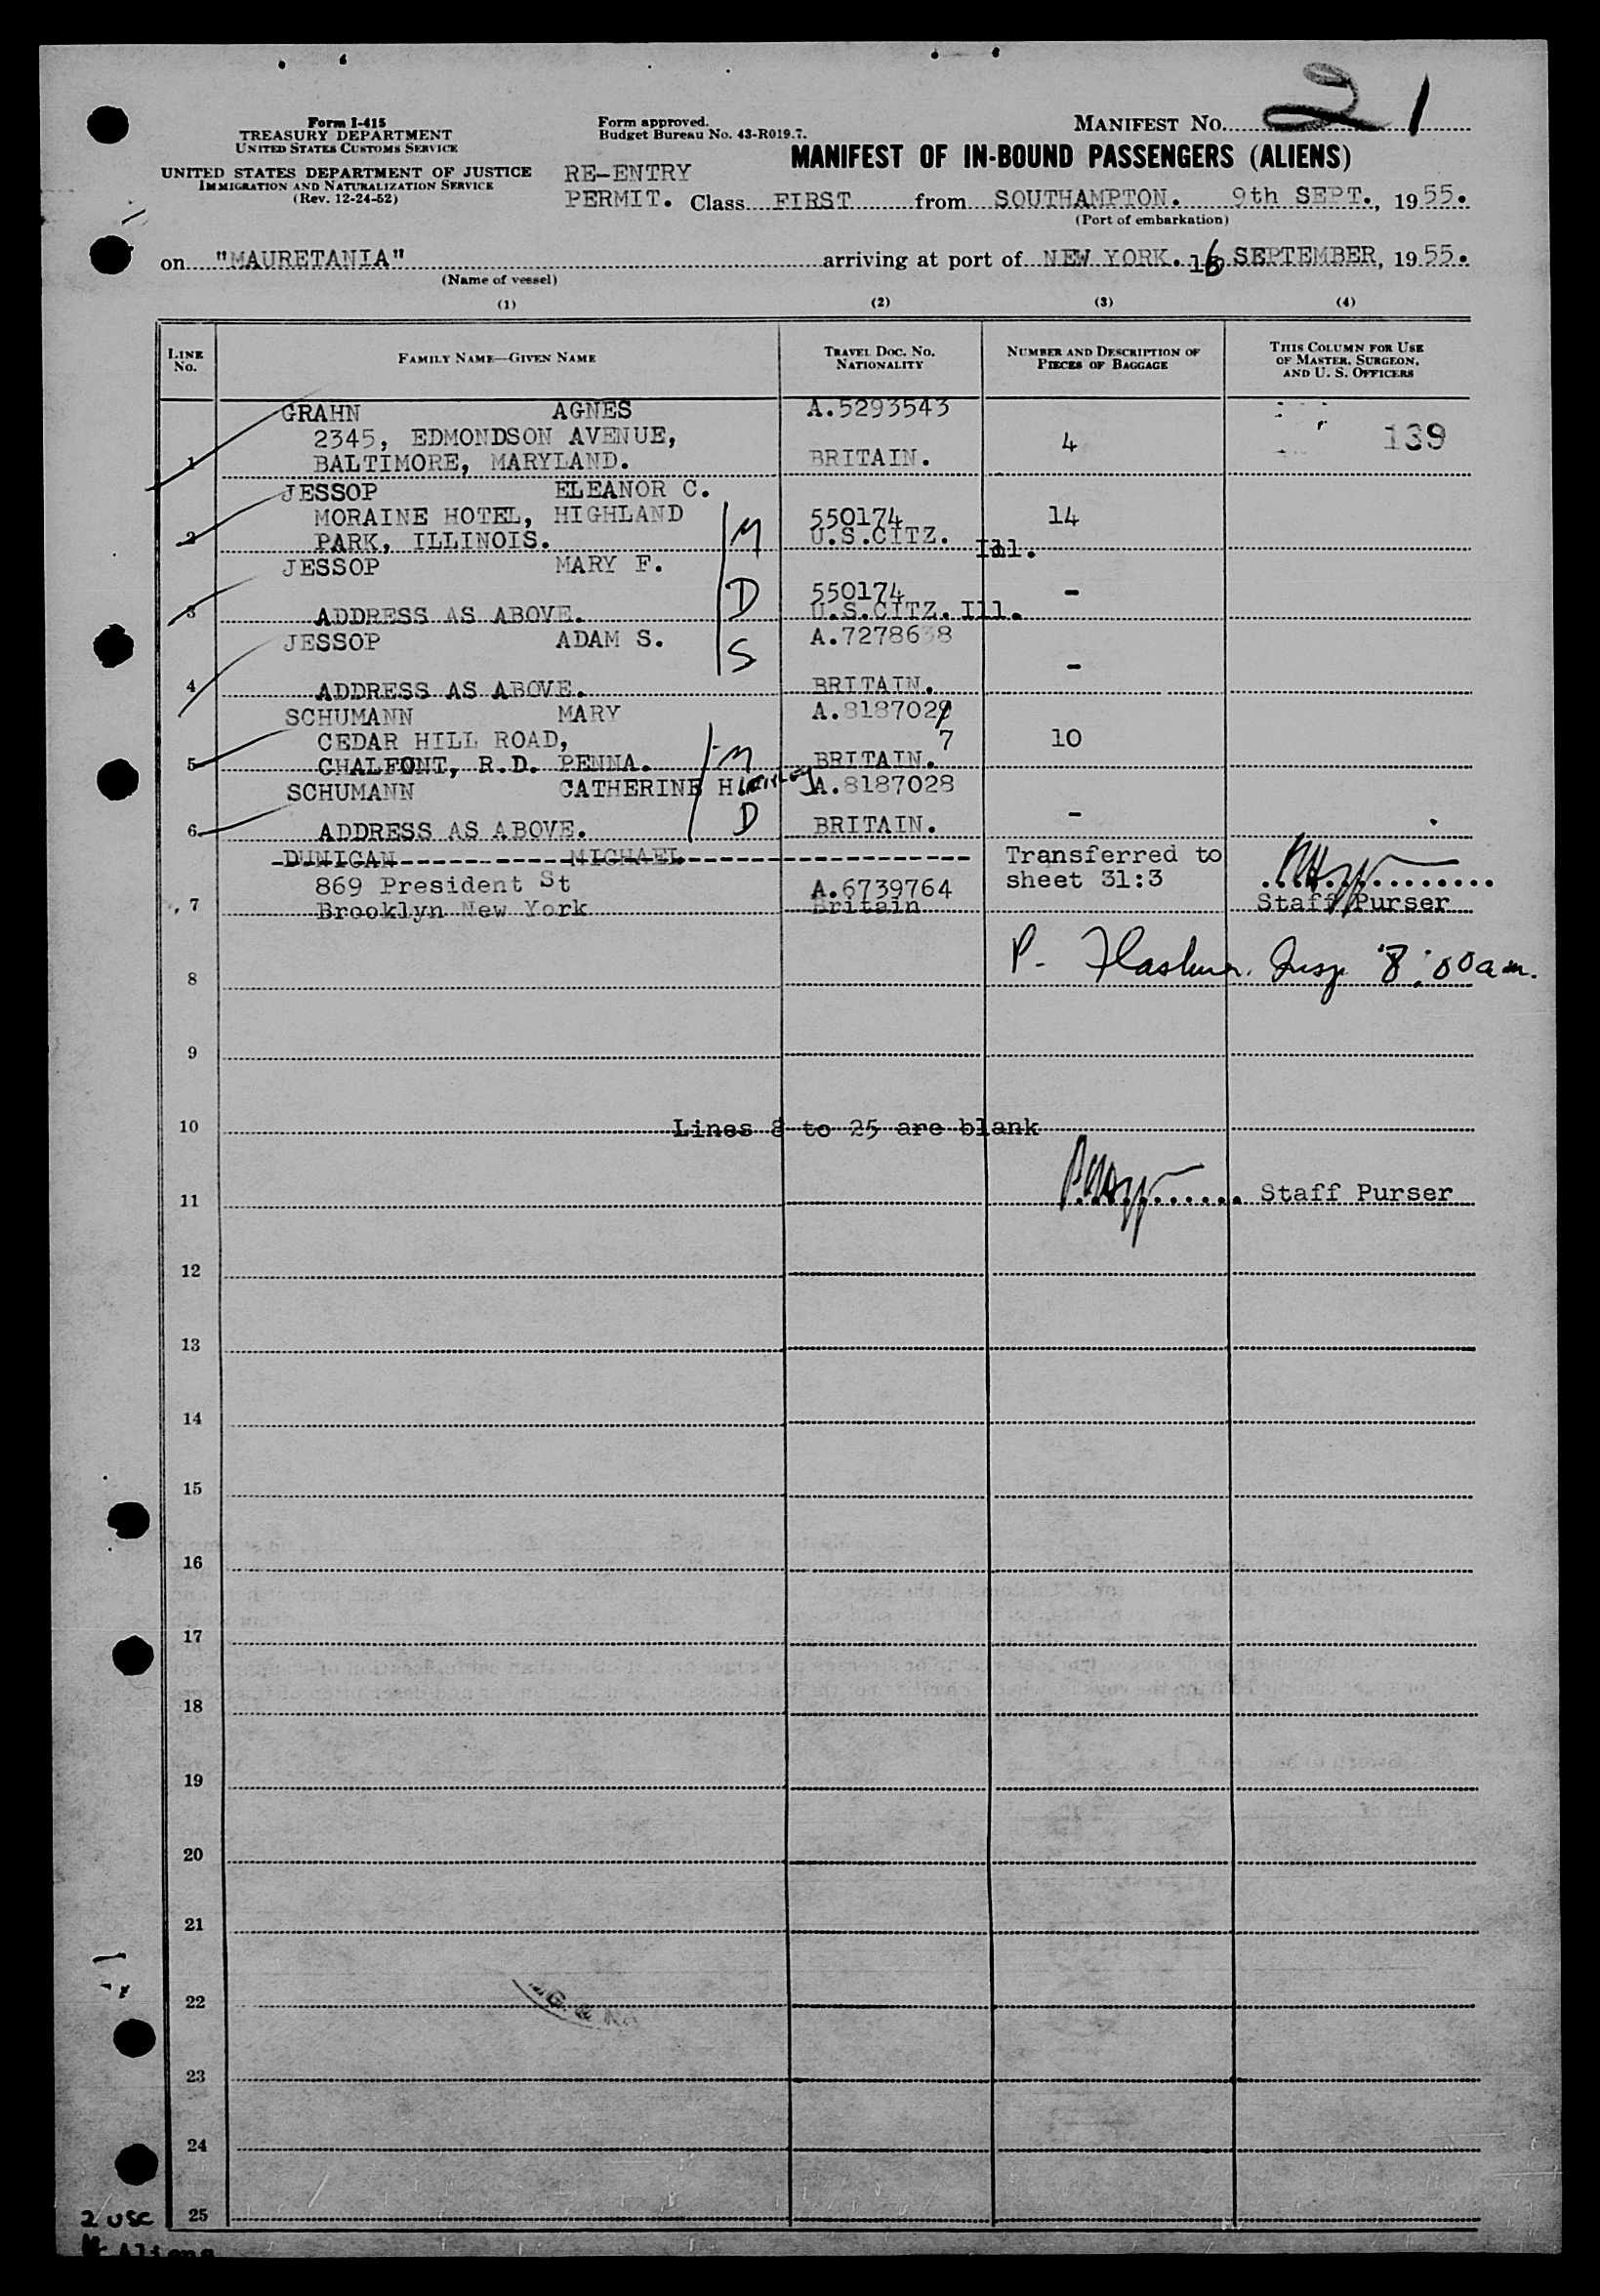 Form I-415
TREASURY DEPARTMENT
UNITED STATES CUSTOMS SERVICE
UNITED STATES DEPARTMENT OF JUSTICE
IMMIGRATION AND NATURALIZATION SERVICE
(Rev. 12-24-52)
Form approved.
Budget Bureau No. 43-R019.7.
MANIFEST NO. 21
MANIFEST OF IN-BOUND PASSENGERS (ALIENS)
RE-ENTRY
PERMIT. Class FIRST from SOUTHAMPTON. 9th SEPT., 1955.
(Port of embarkation)
on "MAURETANIA" arriving at port of NEW YORK. 16 SEPTEMBER, 1955.
(Name of vessel)
(1) (2) (3) (4)
LINE NO. FAMILY NAME—GIVEN NAME TRAVEL DOC. NO. NATIONALITY NUMBER AND DESCRIPTION OF PIECES OF BAGGAGE THIS COLUMN FOR USE OF MASTER, SURGEON, AND U. S. OFFICERS
GRAHN AGNES A.5293543
2345, EDMONDSON AVENUE, 4 139
1 BALTIMORE, MARYLAND. BRITAIN.
JESSOP ELEANOR C.
MORAINE HOTEL, HIGHLAND 550174 14
2 PARK, ILLINOIS. M U.S.CITZ. Ill.
JESSOP MARY F.
D 550174 -
3 ADDRESS AS ABOVE. U.S.CITZ. Ill.
JESSOP ADAM S. A.7278638
S -
4 ADDRESS AS ABOVE. BRITAIN.
SCHUMANN MARY A.8187029
CEDAR HILL ROAD, 7 10
5 CHALFONT, R.D. PENNA. M BRITAIN.
SCHUMANN CATHERINE H A.8187028
D -
6 ADDRESS AS ABOVE. BRITAIN.
DUNIGAN MICHAEL Transferred to
869 President St A.6739764 sheet 31:3
7 Brooklyn New York Britain Staff Purser
8 P. Insp. 8:00am.
9
10 Lines 8 to 25 are blank
11 Staff Purser
12
13
14
15
16
17
18
19
20
21
22
23
24
25
2 USC
4 Aliens